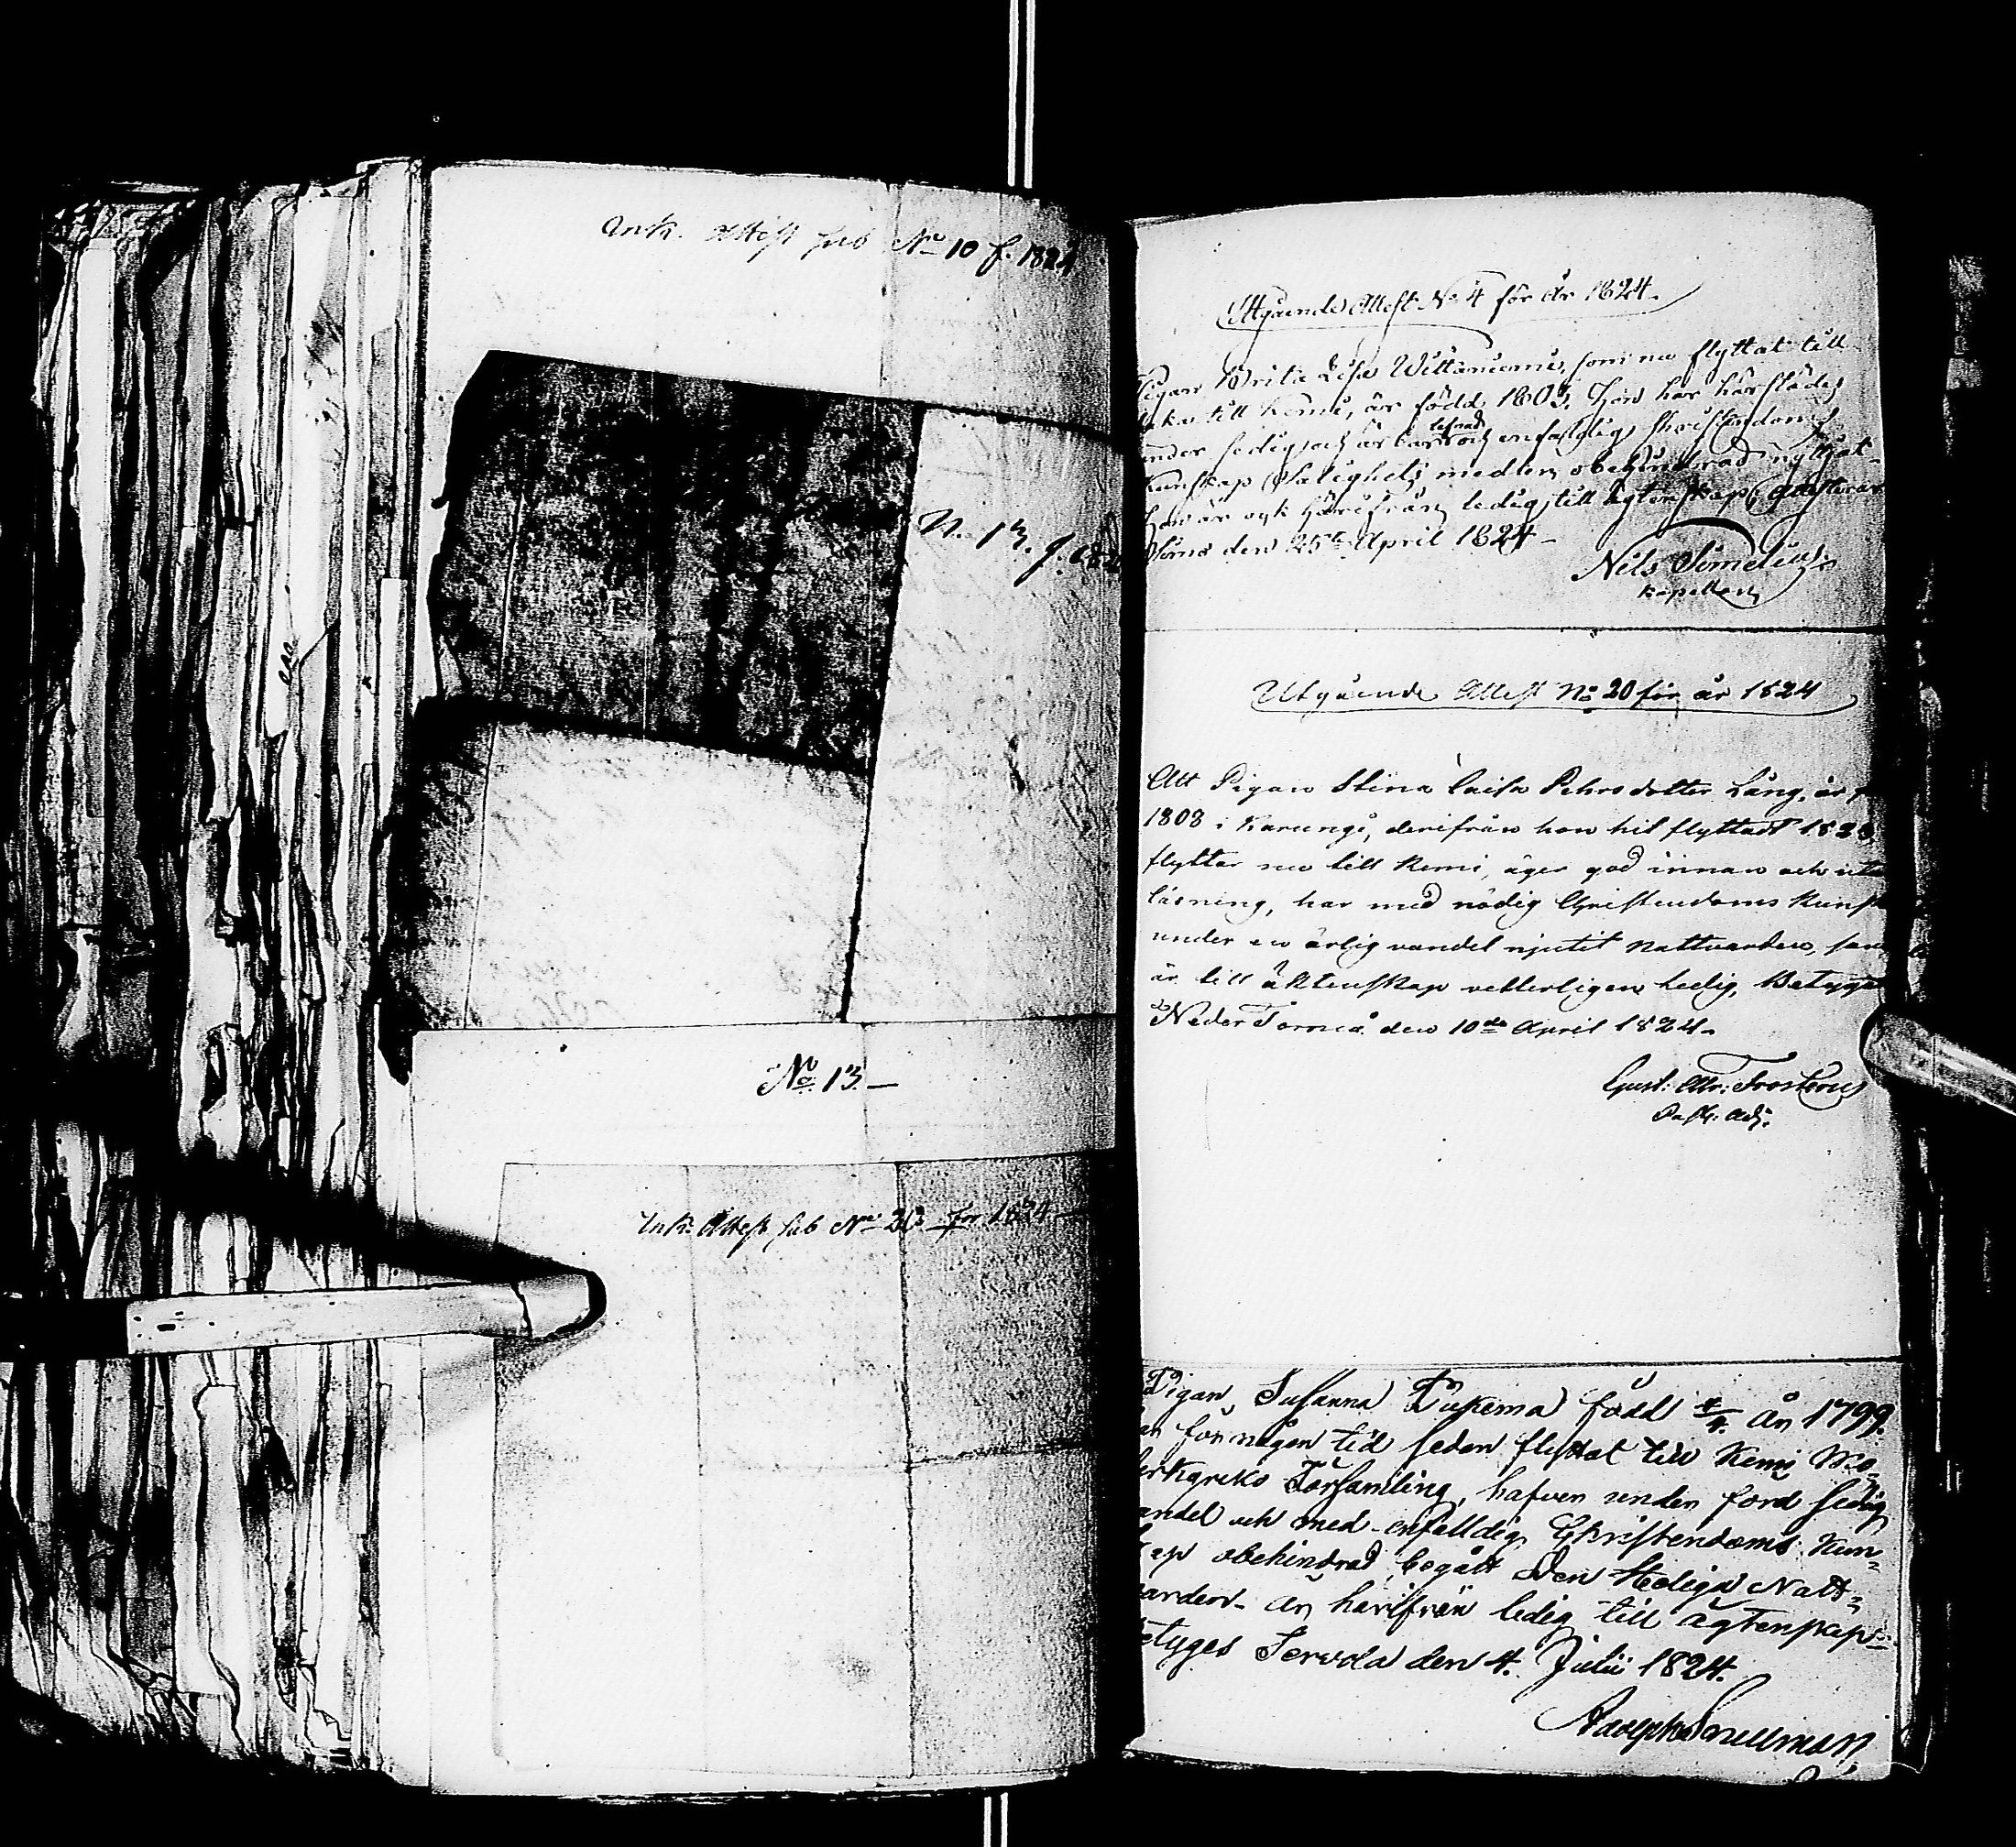 Ink. Attest sub No 10 f. 1824
N. 13. f.
No 13.—
Ink. Attest sub No 20 for 1824—
Utgående Attest No 4 för år 1824.
Pigan Brita Lisa Wittaniemi, som nu flyttat till
till Kemi, är född 1805. Hon har härstädes
lefnad
och enfaldig Christendoms
Kunskap Salighets medlen obehindrad nyttjat.
Hon är ock härifrån ledig till ägtenskap; attesterar
Simo den 25te April 1824—
Nils Simelius.
Kapellan
Utgående Attest No 20 för år 1824
Att Pigan Stina Caisa Pehrsdotter Lång, är
1808 i Karungi, derifrån hon hit flyttadt
flyttar nu till Kemi, äger god innan och
läsning, har med nödig Christendoms
under en ärlig vandel njutit Nattvarden,
är till äktenskap vetterligen ledig,
Neder Torneå den 10de April 1824.
Gust: Frosterus
Past. Adj.
Pigan Susanna född År 1799.
för någon tid sedan flyttat till Kemi Mo-
erkyrko Församling, hafver under ford sedig
andel och med enfalldig Christendoms Kun-
ap obehindrad begått Den Heeliga Natt-
arden. är härifrån ledig till ägtenskap
etyges Tervola den 4. Julii 1824.
Adolph Snellman